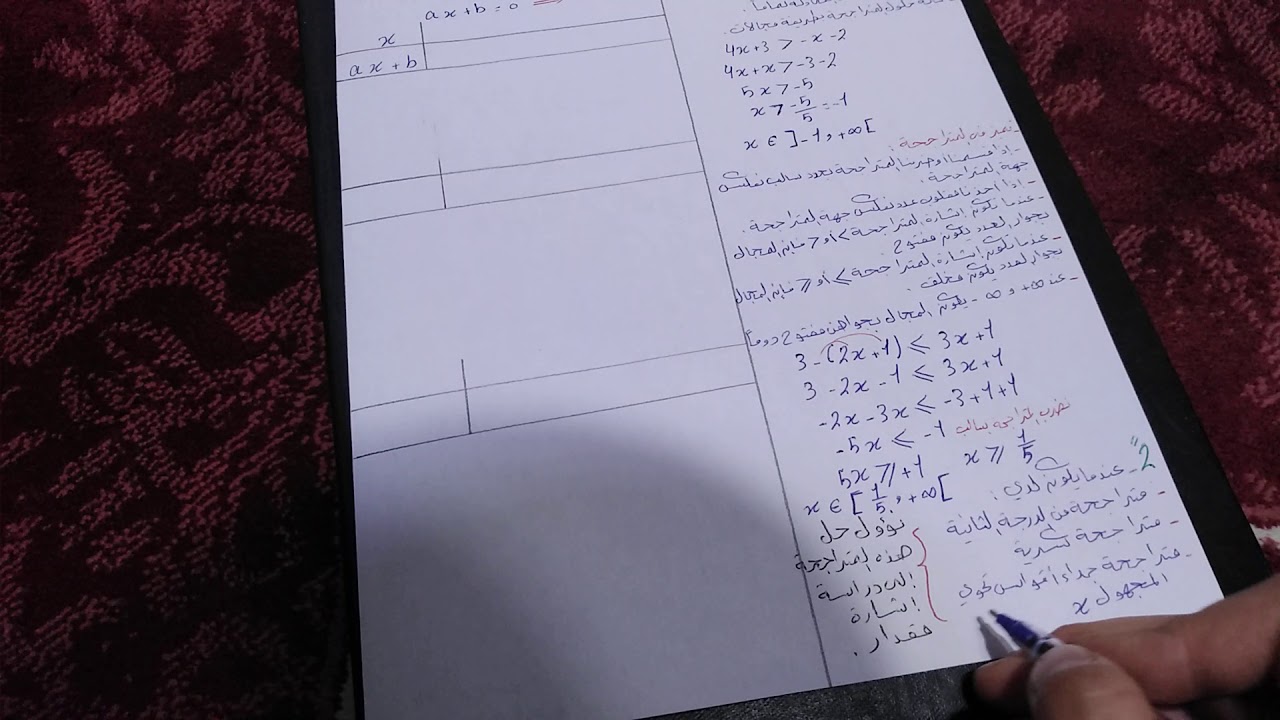 حلول لمتراجحة بطريقة مجالات.
4x+3 > -x-2
4x+x > -3-2
5x > -5
x > -5/5 = -1
x ∈ ]-1, +∞[
لمتراجحة:
- إذا قسمنا أو ضربنا لمتراجحة بعدد سالب نعكس
جهة لمتراجحة.
- إذا أخذنا مقلوب عدد نعكس جهة لمتراجحة.
- عندما تكون إشارة لمتراجحة > أو < فإن المجال
بجوار لعدد يكون مفتوح
- عندما تكون إشارة لمتراجحة ⩾ أو ⩽ فإن المجال
بجوار لعدد يكون مغلق.
- عند +∞ و -∞ يكون المجال مفتوح دوماً
3-(2x+1) ⩽ 3x+1
3-2x-1 ⩽ 3x+1
-2x-3x ⩽ -3+1+1
-5x ⩽ -1 نضرب لمتراجحة بسالب
5x ⩾ +1 x ⩾ 1/5
x ∈ [1/5, +∞[
2- عندما يكون لدي:
- متراجحة من لدرجة لثانية
- متراجحة كسرية
- متراجحة جداء أقواس تحوي
المجهول x
نؤول حل
هذه لمتراجحة
إلى دراسة
إشارة
مقدار.
ax+b=0 ⟹
x
ax+b